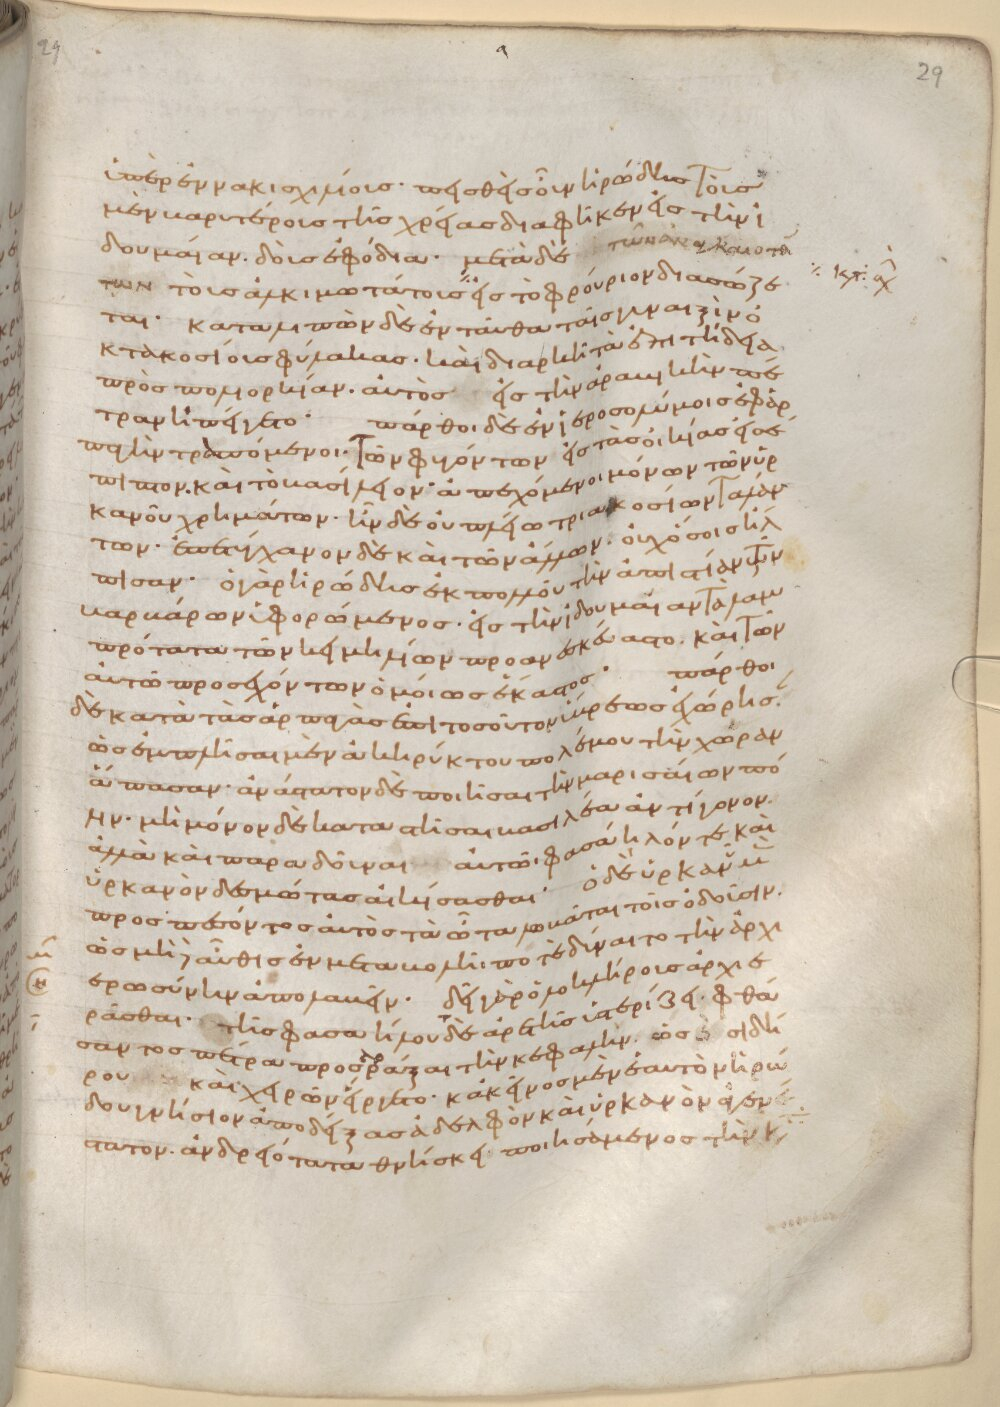 29
29
ὑπὲρ ἐννακισχιλίους. πεισθεὶς οὖν ἡρώδης τοὺς
μὲν βαρυτέρους τῆς χρείας διαφῆκεν εἰς τὴν ἰ
δουμαίαν. δοὺς ἐφόδια. μετὰ δὲ τῶν ἀναγκαιοτά
των τοὺς ἀλκιμωτάτους εἰς τὸ φρούριον διασώζε
ται. καταλιπὼν δὲ ἐνταῦθα ταῖς γυναιξὶν ὀ
κτακοσίους φύλακας. καὶ διαρκῆ τὰ ἐπιτήδεια
πρὸς πολιορκίαν. αὐτὸς εἰς τὴν ἀραβικὴν πέ
τραν ἠπείγετο. πάρθοι δὲ ἐν ἱεροσολύμοις ἐφ᾽ ἁρ
παγὴν τραπόμενοι. τῶν φυγόντων εἰς τὰς οἰκίας εἰσέ
πιπτον. καὶ τὸ βασίλειον. ἀπεχόμενοι μόνων τῶν ὑρ
κανοῦ χρημάτων. ἦν δὲ οὐ πλείω τριακοσίων ταλάν
των. ἐπετύχανον δὲ καὶ τῶν ἄλλων. οὐχ ὅσοις ἤλ
πισαν. ὁ γὰρ ἡρώδης ἐκ πολλοῦ τὴν ἀπιστίαν τῶν
βαρβάρων ὑφορώμενος. εἰς τὴν ἰδουμαίαν τὰ λαμ
πρότατα τῶν κειμηλίων προανεσκεύαστο. καὶ τῶν
αὐτῶ προσεχόντων ὁμοίως ἕκαστος. πάρθοι
δὲ κατὰ τὰς ἁρπαγὰς ἐπὶ τοσοῦτον ὕβρεως ἐχώρησ.
ὡς ἐμπλῆσαι μὲν ἀκηρύκτου πολέμου τὴν χώραν
ἅπασαν. ἀνάστατον δὲ ποιῆσαι τὴν μαρισαίων πό
λιν. μὴ μόνον δὲ καταστῆσαι βασιλέα ἀντίγονον.
ἀλλὰ καὶ παραδοῦναι αὐτῶ. φασάηλόν τε καὶ
ὑρκανὸν δεσμώτας αἰκίσασθαι. ὁ δὲ ὑρκανοῦ μὲν
προσπεσόντος αὐτὸς τὰ ὦτα λωβᾶται τοῖς ὀδοῦσιν.
ὡς μηδ᾽ αὖθις ἐν μεταβολῆ ποτὲ δύναιτο τὴν ἀρχι
ερωσύνην ἀπολαβεῖν. δεῖ γὰρ ὁλοκλήρους ἀρχιε
ρᾶσθαι. τῆς φασαήλου δὲ ἀρετῆς ὑστερίζει. φθά
σαντος πέτρα προσράξαι τὴν κεφαλὴν. ὡς σιδή
ρου καὶ χειρῶν εἴργετο. κἀκεῖνος μὲν ἑαυτὸν ἡρώ
δου γνήσιον ἀποδείξας ἀδελφὸν καὶ ὑρκανὸν ἀγενέ
στατον. ἀνδρειότατα θνήσκει ποιησάμενος τὴν